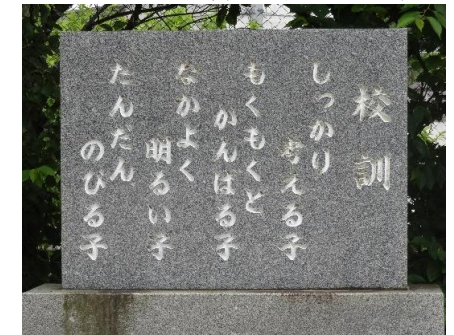 校訓
しっかり
考える子
もくもくと
がんばる子
なかよく
明るい子
たんだん
のびる子